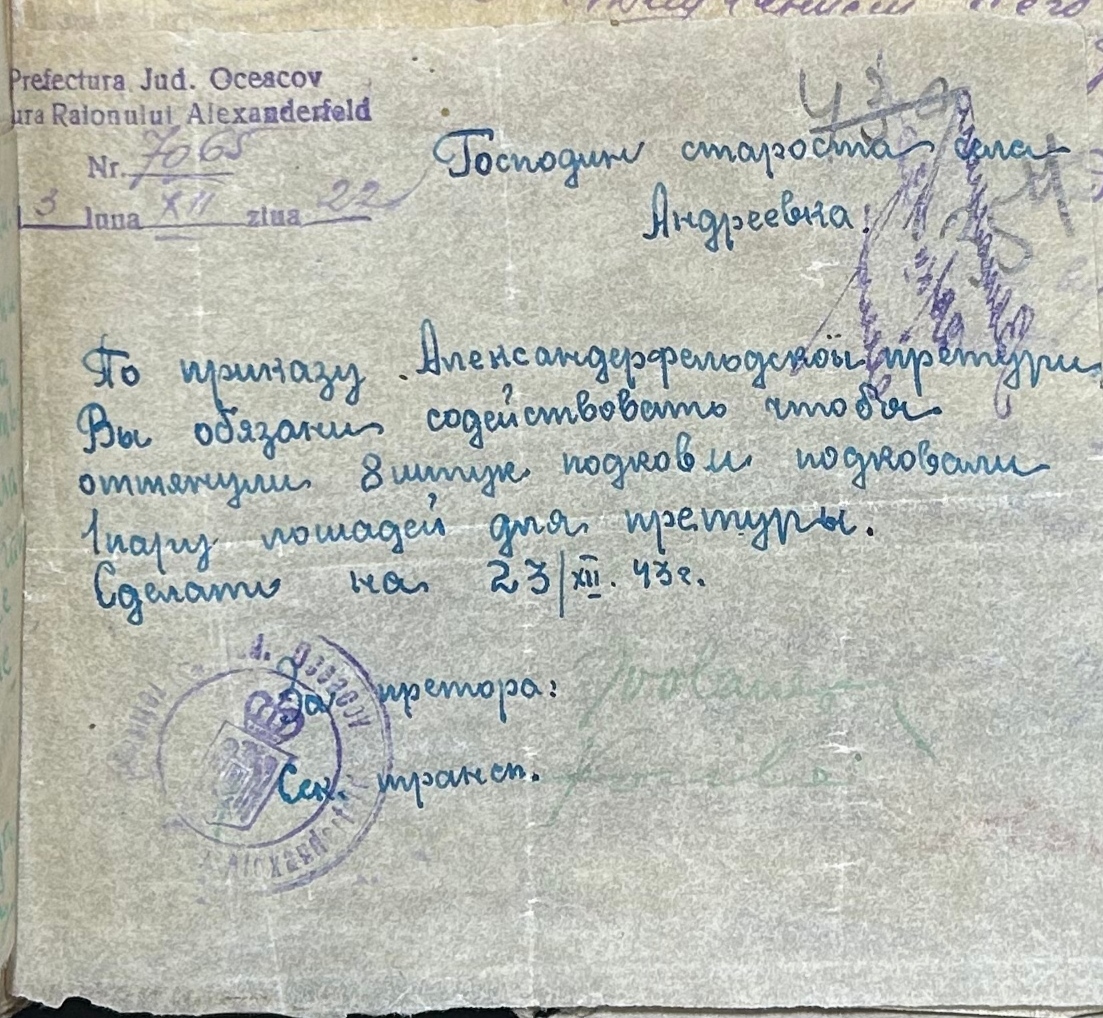 Prefectura Jud. Oceacov
Raionului Alexanderfeld
Nr. 7065
3 luna XII ziua 22
Господин староста села
Андреевка!
По приказу Александерфельдской претури
Вы обязани содействовать чтобы
оттянули 8 штук подков и подковали
1 пару лошадей для претуры.
Сделать на 23/XII. 43 г.
За претора:
Сек. трансп.